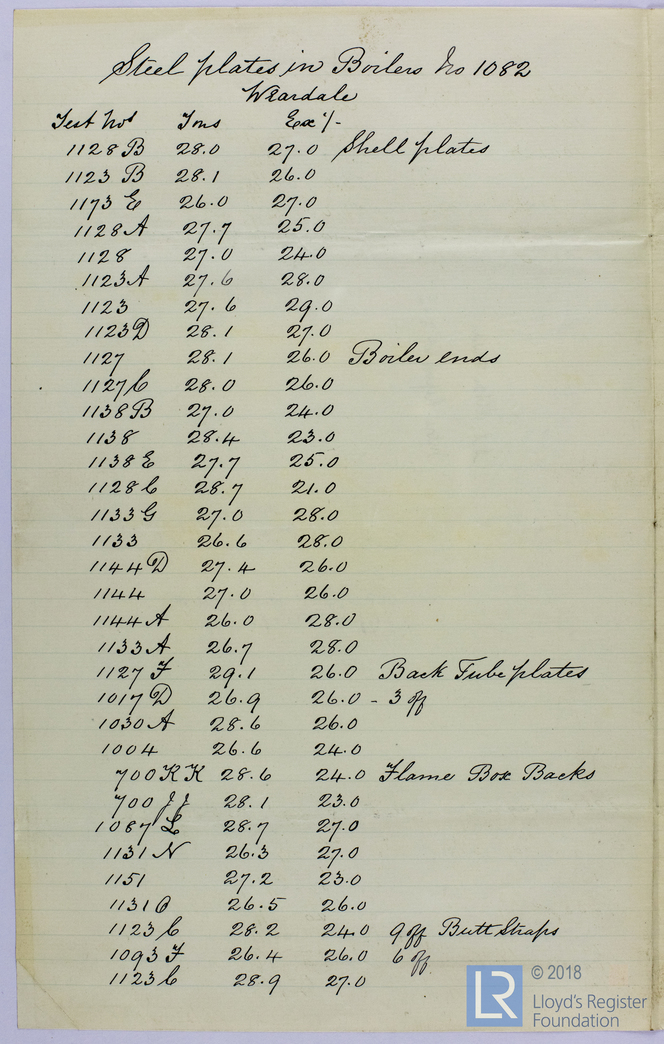 Steel plates in Boilers No 1082
Weardale
Test Nos Tons Ex %
1128 B 28.0 27.0 Shell plates
1123 B 28.1 26.0
1173 E 26.0 27.0
1128 A 27.7 25.0
1128 27.0 24.0
1123 A 27.6 28.0
1123 27.6 29.0
1123 D 28.1 27.0
1127 28.1 26.0 Boiler ends
1127 C 28.0 26.0
1138 B 27.0 24.0
1138 28.4 23.0
1138 E 27.7 25.0
1128 C 28.7 21.0
1133 G 27.0 28.0
1133 26.6 28.0
1144 D 27.4 26.0
1144 27.0 26.0
1144 A 26.0 28.0
1133 A 26.7 28.0
1127 F 29.1 26.0 Back Tube plates
1017 D 26.9 26.0 - 3 off
1030 A 28.6 26.0
1004 26.6 24.0
700 KK 28.6 24.0 Flame Box Backs
700 JJ 28.1 23.0
1087 L 28.7 27.0
1131 N 26.3 27.0
1151 27.2 23.0
1131 O 26.5 26.0
1123 C 28.2 24.0 9 off Butt Straps
1093 F 26.4 26.0 6 off
1123 C 28.9 27.0
LR © 2018
Lloyd's Register
Foundation